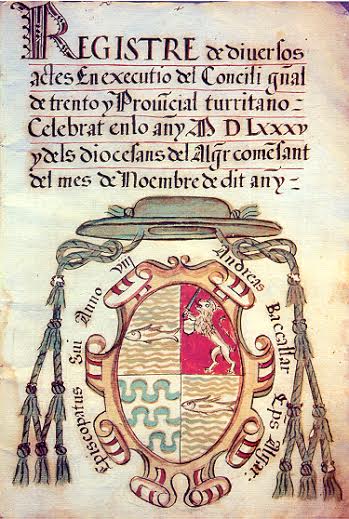 REGISTRE de diuersos
actes En executio del Concili gñal
de trento y Prouĩcial turritano =
Celebrat en lo any M D Lxxxv
y dels diocesans del Algr comẽsant
del mes de Noembre de dit any =
Episcopatus Sui Anno VIII
Andreas Baccallar Eps Alguer: